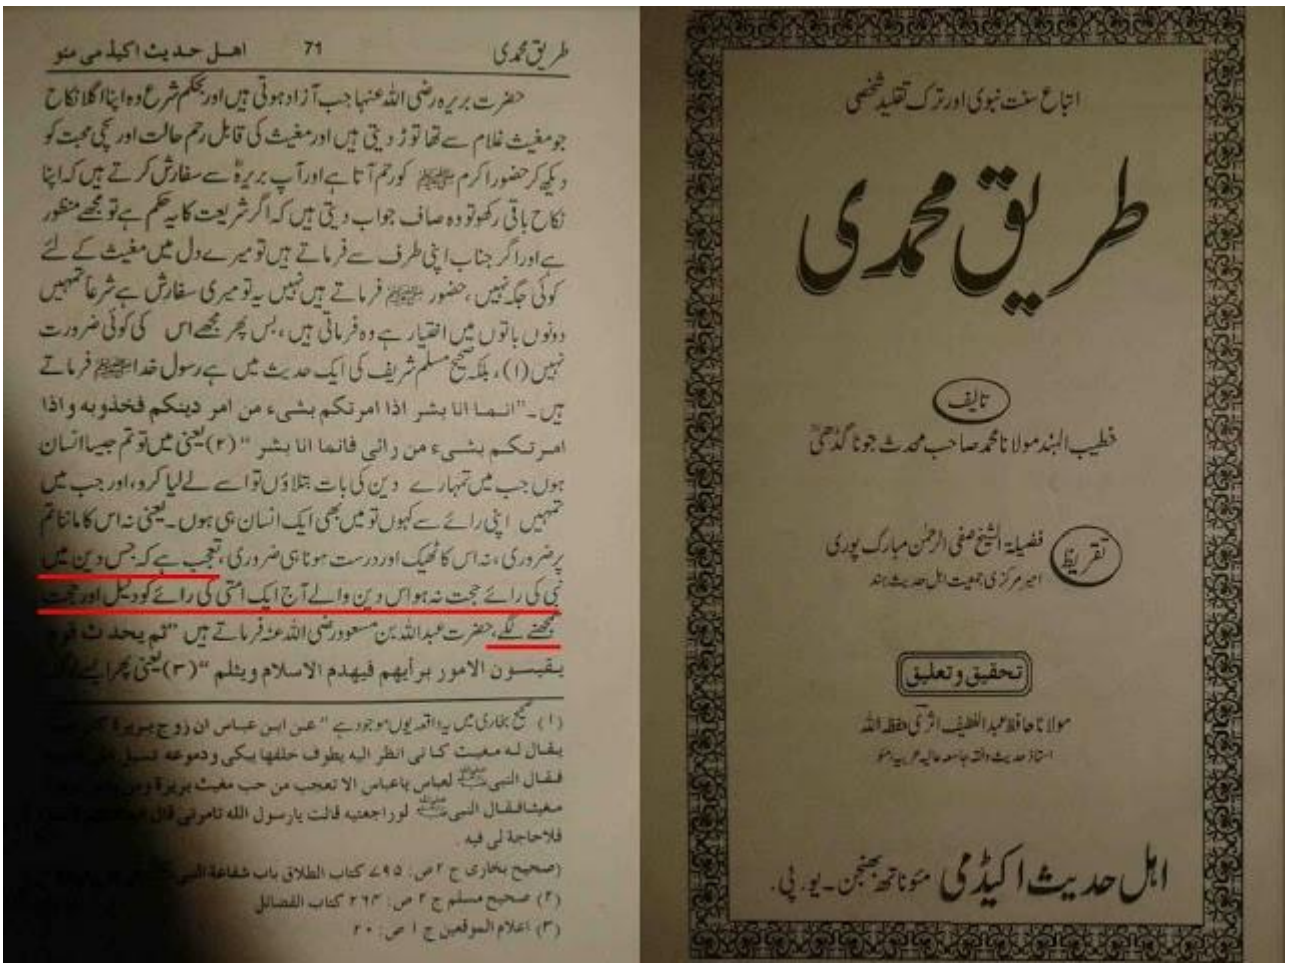 طریق محمدی 71 اهل حدیث اکیڈمی مئو
حضرت بریرہ رضی اللہ عنہا جب آزاد ہوتی ہیں اور بحکم شرع وہ اپنا اگلا نکاح
جو مغیث غلام سے تھا توڑ دیتی ہیں اور مغیث کی قابل رحم حالت اور سچی محبت کو
دیکھ کر حضور اکرم ﷺ کو رحم آتا ہے اور آپ بریرہؓ سے سفارش کرتے ہیں کہ اپنا
نکاح باقی رکھو تو وہ صاف جواب دیتی ہیں کہ اگر شریعت کا یہ حکم ہے تو مجھے منظور
ہے اور اگر جناب اپنی طرف سے فرماتے ہیں تو میرے دل میں مغیث کے لئے
کوئی جگہ نہیں، حضور ﷺ فرماتے ہیں نہیں یہ تو میری سفارش ہے شرعاً تمہیں
دونوں باتوں میں اختیار ہے وہ فرماتی ہیں، بس پھر مجھے اس کی کوئی ضرورت
نہیں (۱)، بلکہ صحیح مسلم شریف کی ایک حدیث میں ہے رسول خدا ﷺ فرماتے
ہیں۔ "انما انا بشر اذا امرتكم بشيء من امر دينكم فخذوبه واذا
امرتكم بشيء من رائي فانما انا بشر" (۲) یعنی میں تو تم جیسا انسان
ہوں جب میں تمہارے دین کی بات بتلاؤں تو اسے لے لیا کرو، اور جب میں
تمہیں اپنی رائے سے کہوں تو میں بھی ایک انسان ہی ہوں۔ یعنی نہ اس کا ماننا تم
پر ضروری، نہ اس کا ٹھیک اور درست ہونا ہی ضروری، تعجب ہے کہ جس دین میں
نبی کی رائے حجت نہ ہو اس دین والے آج ایک امتی کی رائے کو دلیل اور حجت
سمجھنے لگے، حضرت عبداللہ بن مسعود رضی اللہ عنہ فرماتے ہیں "ثم يحدث قوم
يقيسون الامور برأيهم فيهدم الاسلام ويثلم" (۳) یعنی پھر ایسے
(۱) صحیح بخاری میں یہ واقعہ یوں موجود ہے "عن ابن عباس ان زوج بريرة
يقال له مغيث كاني انظر اليه يطوف خلفها يبكي ودموعه تسيل
فقال النبي ﷺ لعباس ياعباس الا تعجب من حب مغيث بريرة ومن
مغيثا فقال النبي ﷺ لو راجعتيه قالت يارسول الله تامرني قال
فلاحاجة لي فيه
(صحيح بخاري ج ۲ ص: ۷۹۵ كتاب الطلاق باب شفاعة النبي
(۲) صحيح مسلم ج ۲ ص: ۲۶۴ كتاب الفضائل
(۳) اعلام الموقعين ج ۱ ص: ۲۰
اتباع سنت نبوی اور ترک تقلید شخصی
طریق محمدی
تالیف
خطیب الہند مولانا محمد صاحب محدث جوناگڈھیؒ
تقریظ
فضیلۃ الشیخ صفی الرحمٰن مبارک پوری
امیر مرکزی جمعیت اہل حدیث ہند
تحقیق و تعلیق
مولانا حافظ عبداللطیف اثری حفظہ اللہ
استاذ حدیث وفقہ جامعہ عالیہ عربیہ مئو
اہل حدیث اکیڈمی مئو ناتھ بھنجن۔ یوپی۔